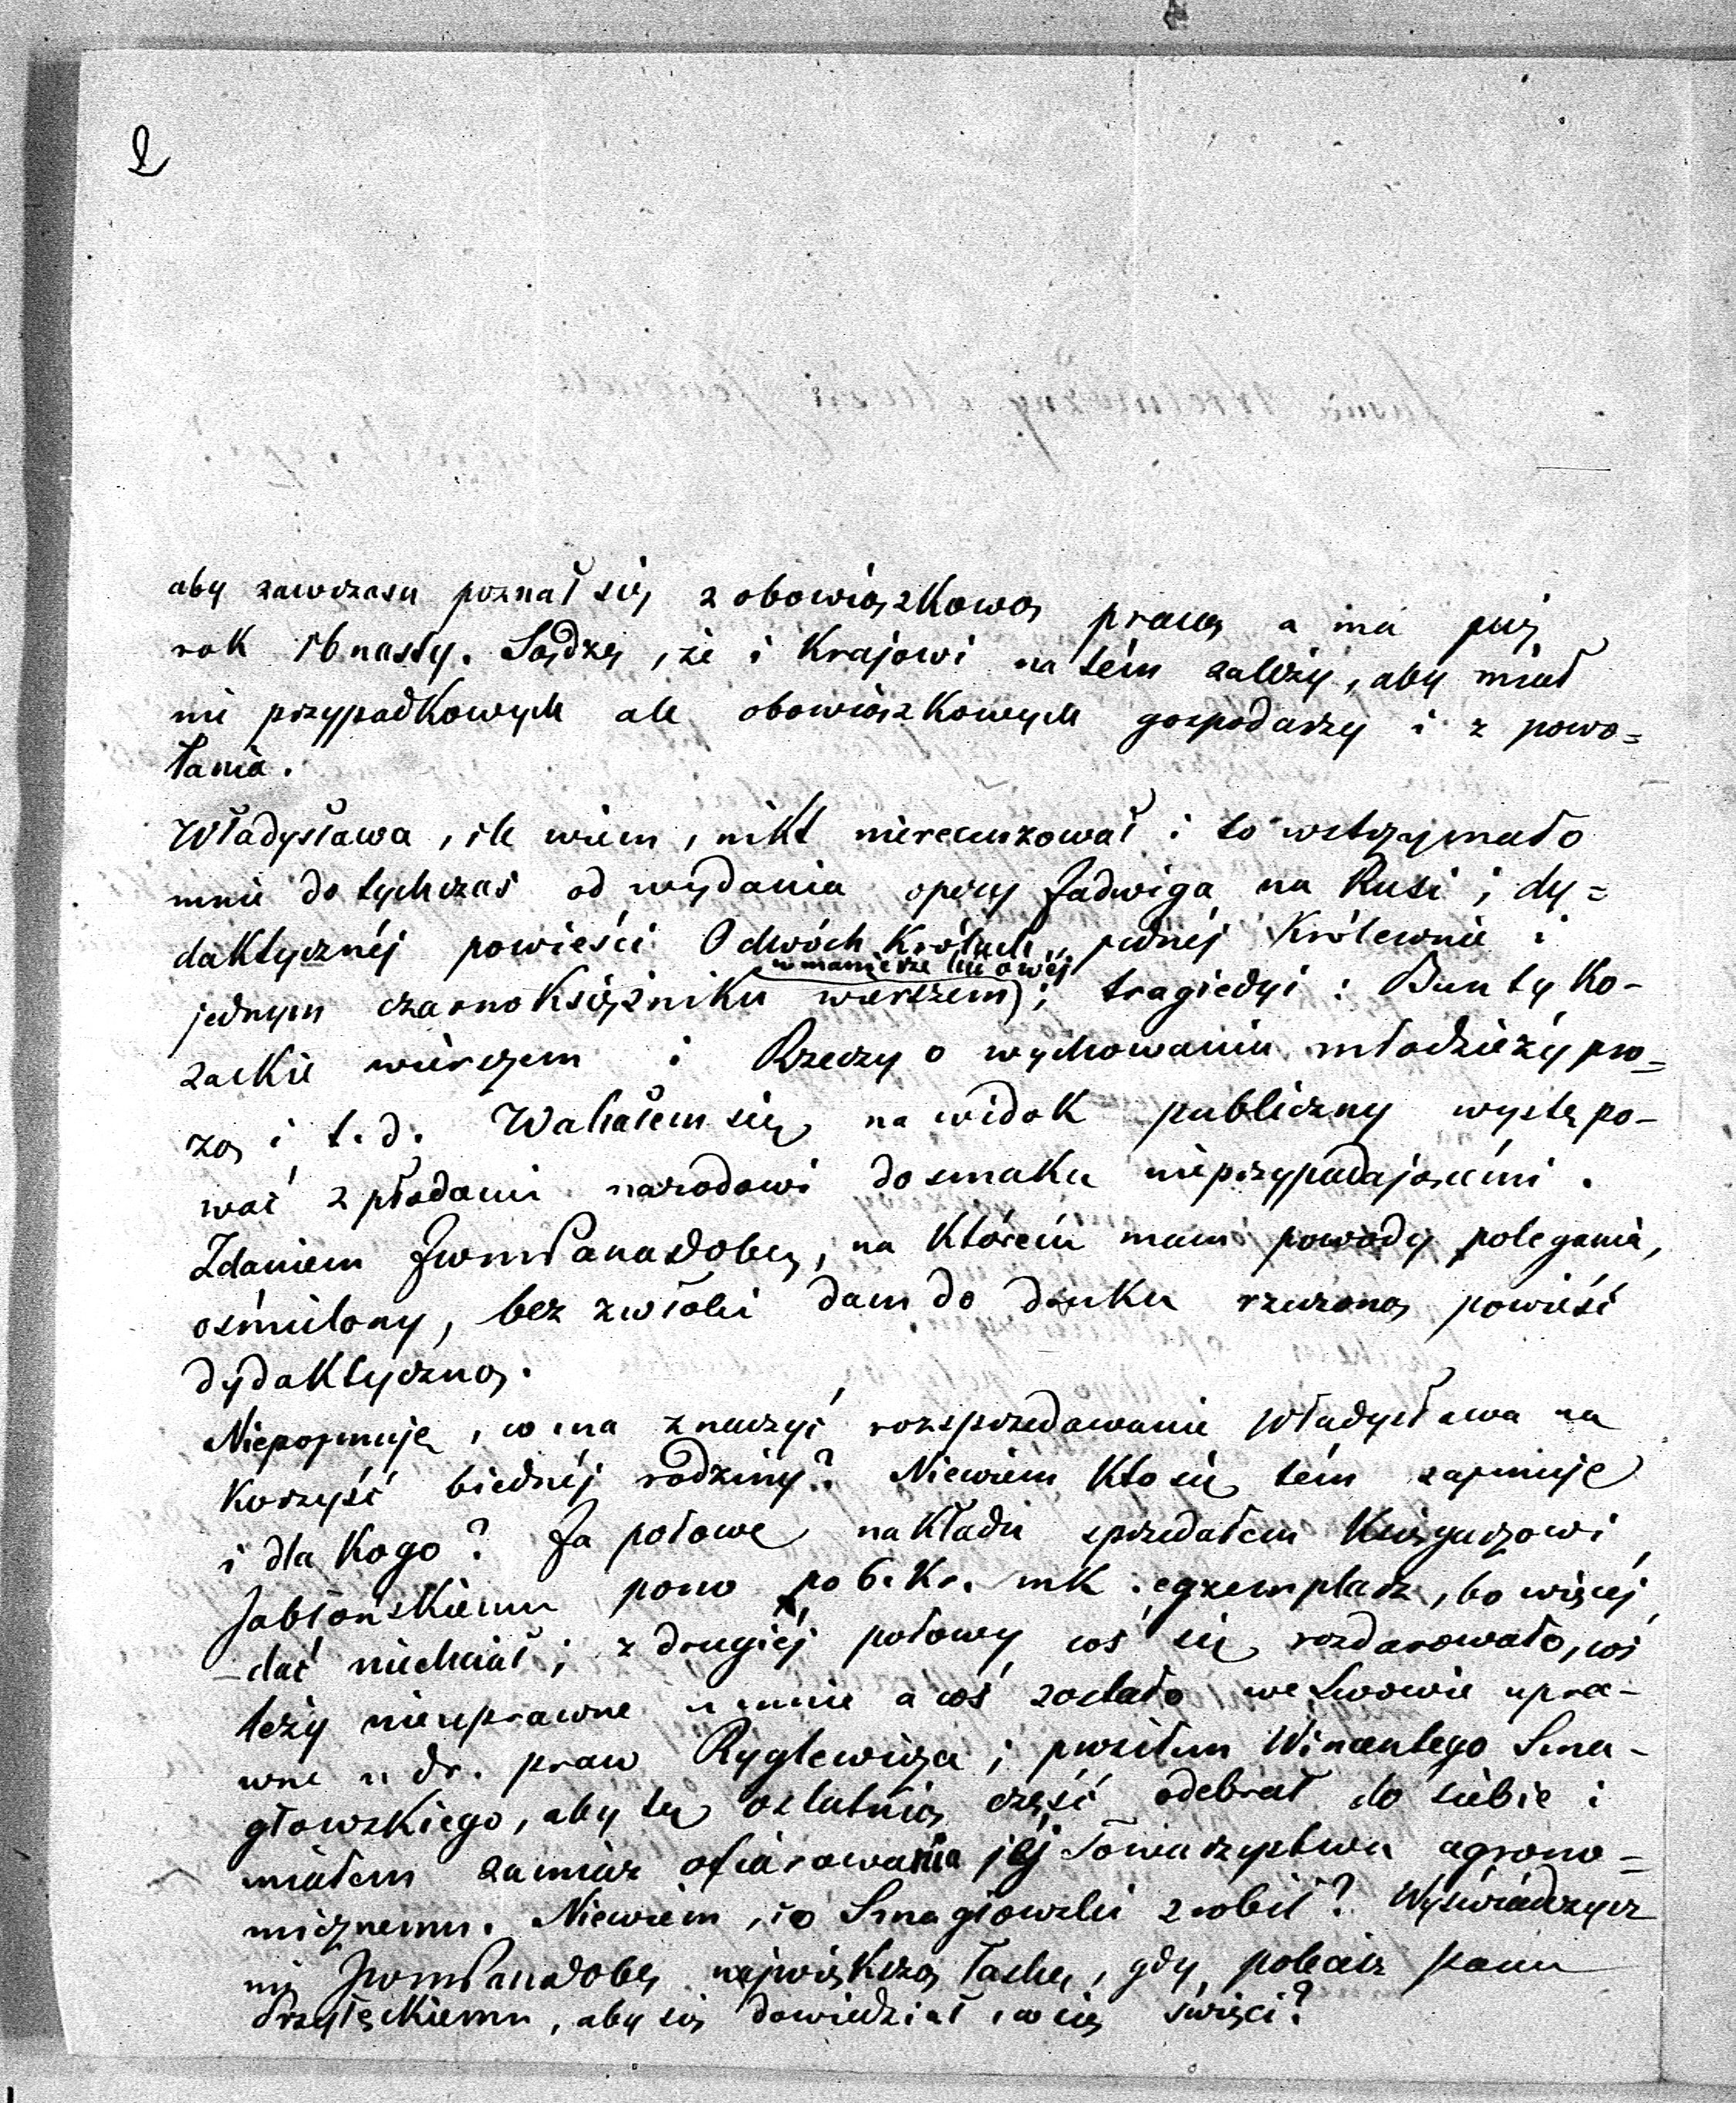 2
aby zawczasu poznał się z obowiązkową pracą a ma już
rok 16nasty. Sądzę, że i Krajowi na tém zależy, aby miał
nie przypadkowych ale obowiązkowych gospodarzy i z powo=
łania.
Władysława, ile wiem, nikt nierecenzował i to wstrzymało
mnie dotychczas od wydania opery Jadwiga na Rusi; dy=
daktycznéj powieści O dwóch Królach, jednéj Królewnie i
w manierze
jednym czarnoksiężniku wierszem); tragiedyi: Bunty Ko-
zackie wierszem i Rzeczy o wychowaniu młodzieży pro=
zą i t.d. Wahałem się na widok publiczny występo-
wać z płodami narodowi do smaku nieprzypadającémi.
Zdaniem JWmPanaDobr, na którém mam powody polegania,
ośmielony, bez zwłoki dam do druku rzeczoną powieść
dydaktyczną.
Niepojmuję, co ma znaczyć rozsprzedawanie Władysława na
korzyść biednéj rodziny? Niewiem kto się tém zajmuje
i dla kogo? Ja połowę nakładu sprzedałem Księgarzowi
Jabłońskiemu pono po 6. Kr. mk. egzemplarz, bo więcéj
dać niechciał; z drugiéj połowy coś się rozdarowało, coś
leży nieuprawne u mnie a coś zostało we Lwowie upra-
wne u dr. praw Ryglewicza; prosiłem Wincentego Sma-
głowskiego, aby tę ostatnią część odebrał do siebie i
miałem zamiar ofiarowania jéj Towarzystwu agrono=
micznemu. Niewiem, co Smagłowski zrobił? Wyświadczysz
mi JWmPanaDobr największą łaskę, gdy polecisz panu
Przyłęckiemu, aby się dowiedział, co się święci?